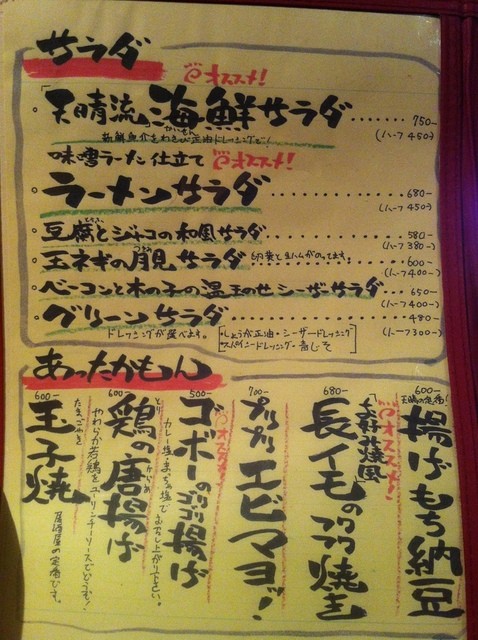 サラダ
オススメ!
「天晴流」海鮮サラダ ...... 750-
(ハーフ450)
味噌ラーメン仕立て オススメ!
ラーメンサラダ ...... 680-
(ハーフ450)
豆腐とジャコの和風サラダ ...... 580-
(ハーフ380)
玉ネギの月見サラダ ...... 600-
(ハーフ400)
ベーコンと木の子の温玉のせシーザーサラダ ...... 650
(ハーフ400)
グリーンサラダ ...... 480-
(ハーフ300)
ドレッシングが選べます。
・しょうが正油・シーザードレッシング
・スパイシードレッシング・青じそ
あったかもん
600-
天晴の定番!
揚げもち納豆
オススメ!
680-
「お好み焼風」
長イモのフワフワ焼き
700-
プリプリエビマヨッ!
500-
オススメ!
ゴボーのゴリゴリ揚げ
カレー塩、まっ茶塩でお召し上がり下さい。
600-
鶏の唐揚げ
とり からあ
やわらか若鶏をユーリンチーソースでどうぞ!
600-
玉子焼
たまごやき
居酒屋の定番です。